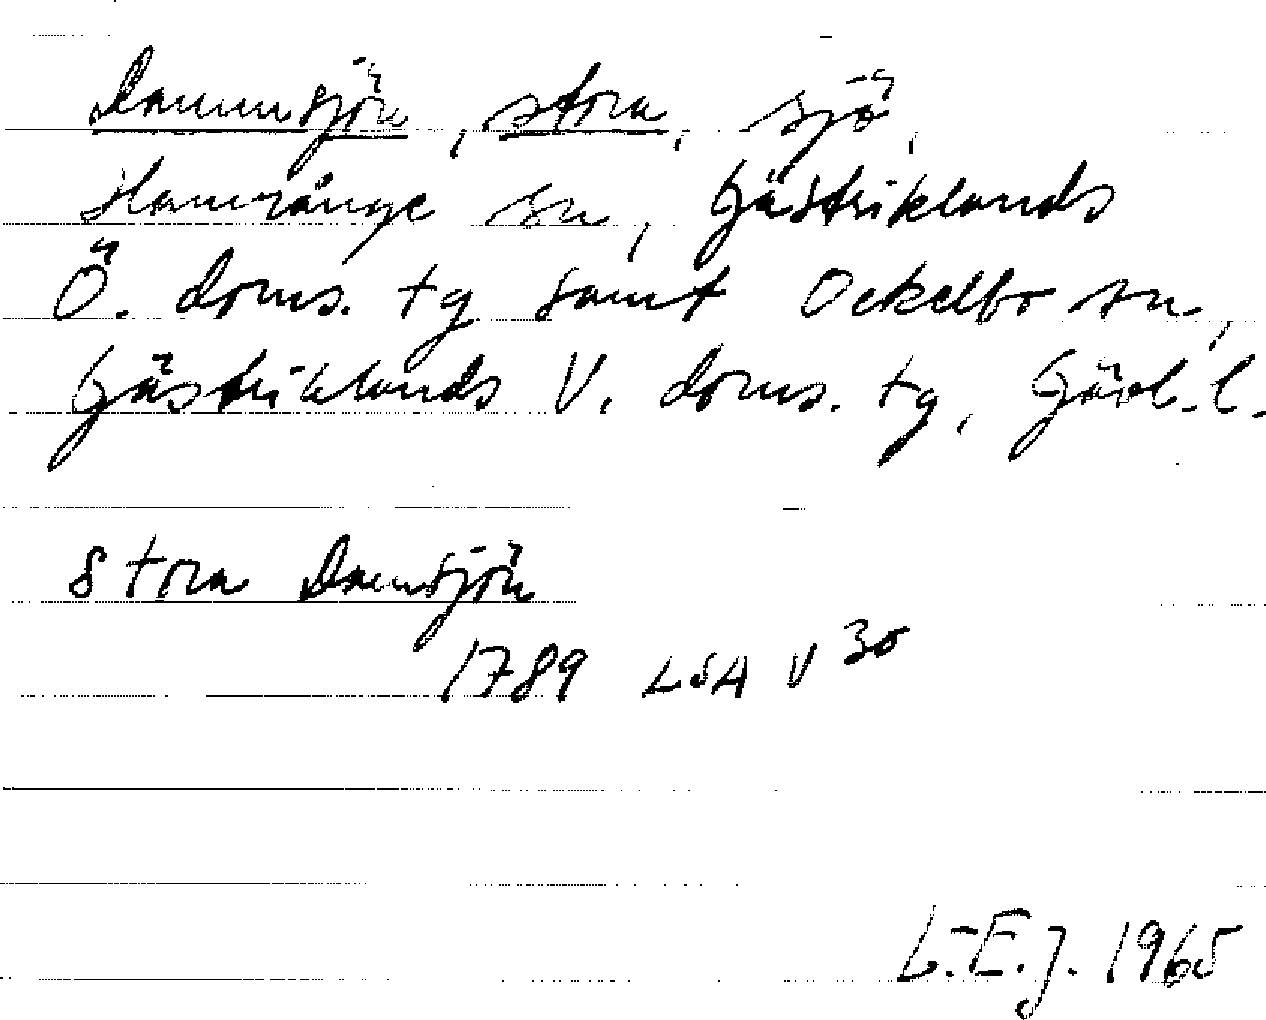 Dammsjön, stora, sjö,
Hamrånge sn, Gästriklands
Ö. doms. tg samt Ockelbo sn,
Gästriklands V. doms. tg, Gävl. l.
Stora Damsjön
1789 LSA V 30
L.-E. J. 1965